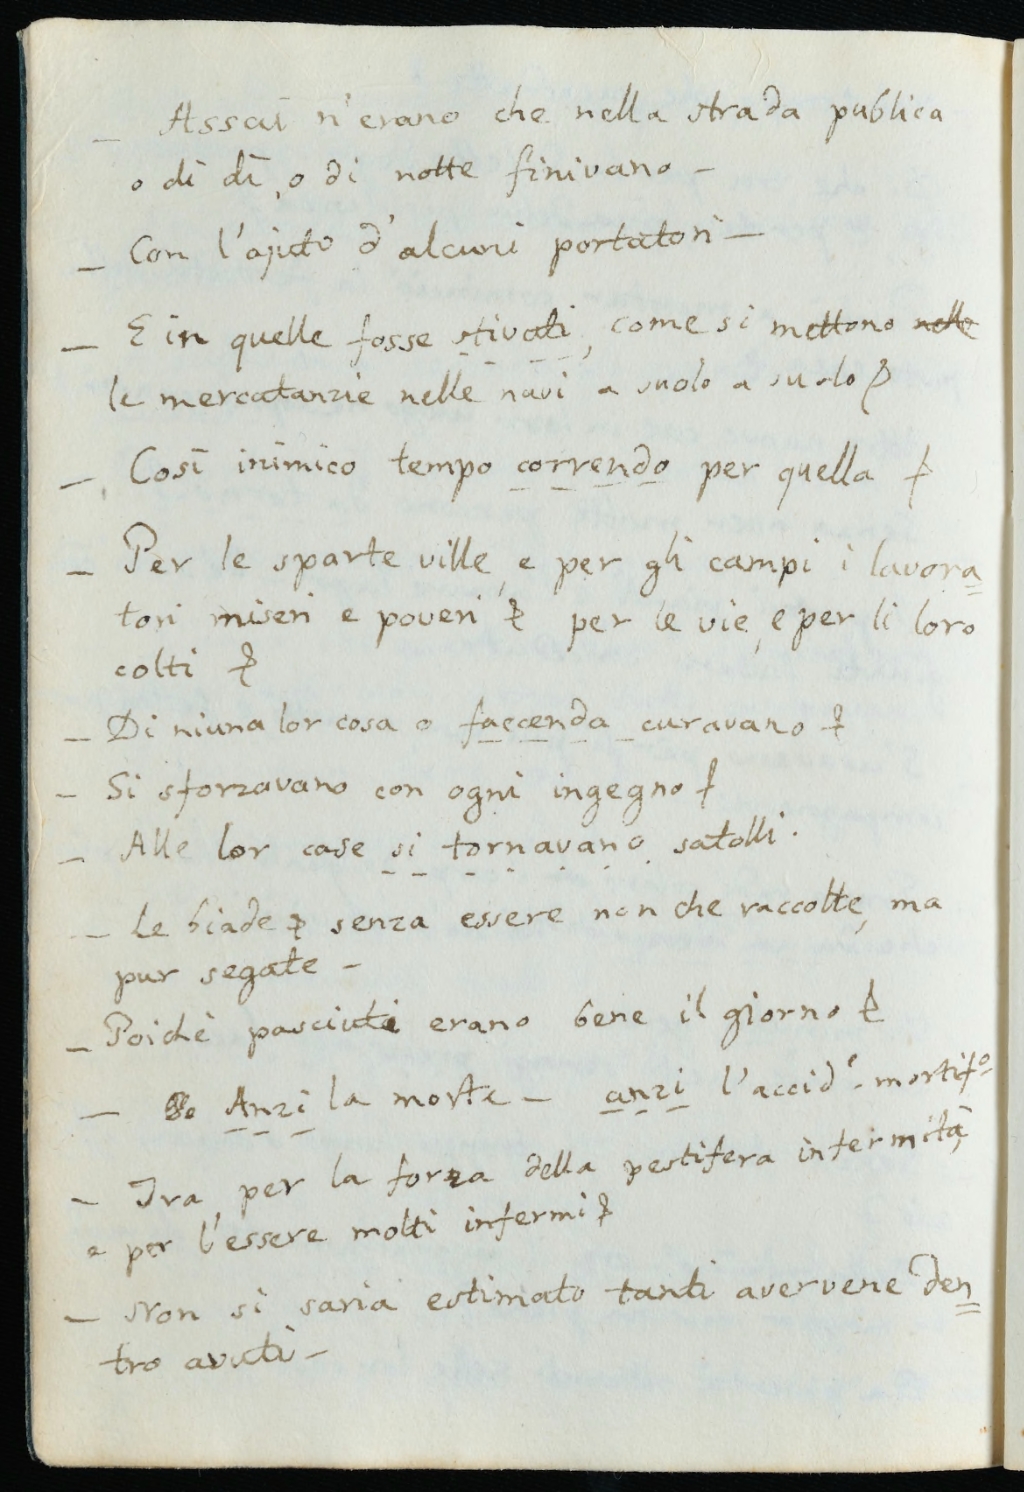 _ Assai n'erano che nella strada publica
o di dì, o di notte finivano -
_ Con l'ajuto d'alcuni portatori -
_ E in quelle fosse stivati, come si mettono nelle
le mercatanzie nelle navi a suolo a suolo
_ Così inimico tempo correndo per quella
_ Per le sparte ville, e per gli campi i lavora=
tori miseri e poveri per le vie, e per li loro
colti
_ Di niuna lor cosa o faccenda curavano
_ Si sforzavano con ogni ingegno
_ Alle lor case si tornavano satolli.
_ Le biade senza essere non che raccolte, ma
pur segate -
_ Poichè pasciuti erano bene il giorno
_ Anzi la morte - anzi l'accid.e mortif.o
_ Tra per la forza della pestifera infermità,
e per l'essere molti infermi
_ Non si saria estimato tanti avervene den=
tro avuti -